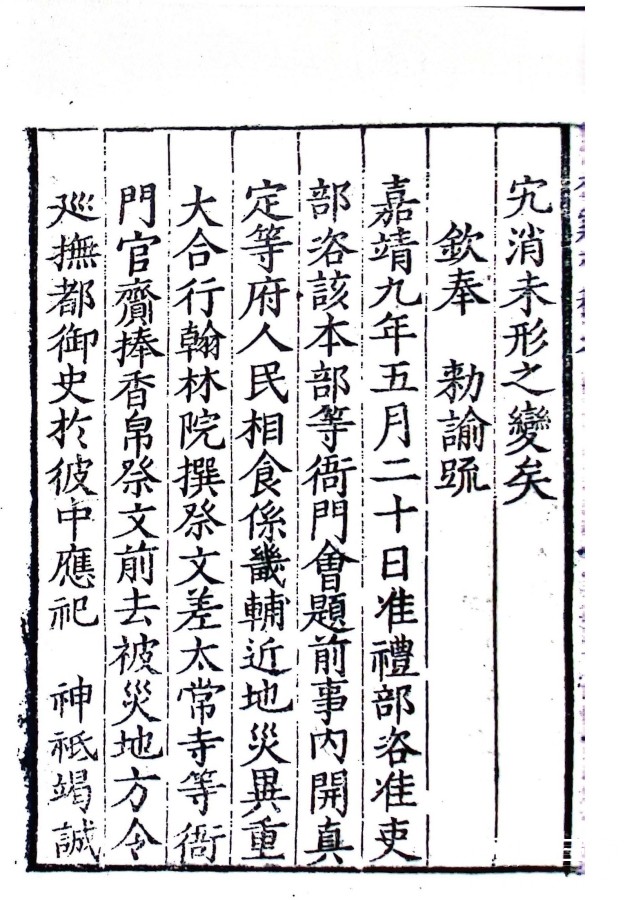 宄消未形之變矣
欽奉　勑諭䟽
嘉靖九年五月二十日准禮部咨准吏
部咨該本部等衙門會題前事内開真
定等府人民相食係畿輔近地災異重
大合行翰林院撰祭文差太常寺等衙
門官齎捧香帛祭文前去被災地方令
廵撫都御史扵彼中應祀　神祇竭誠